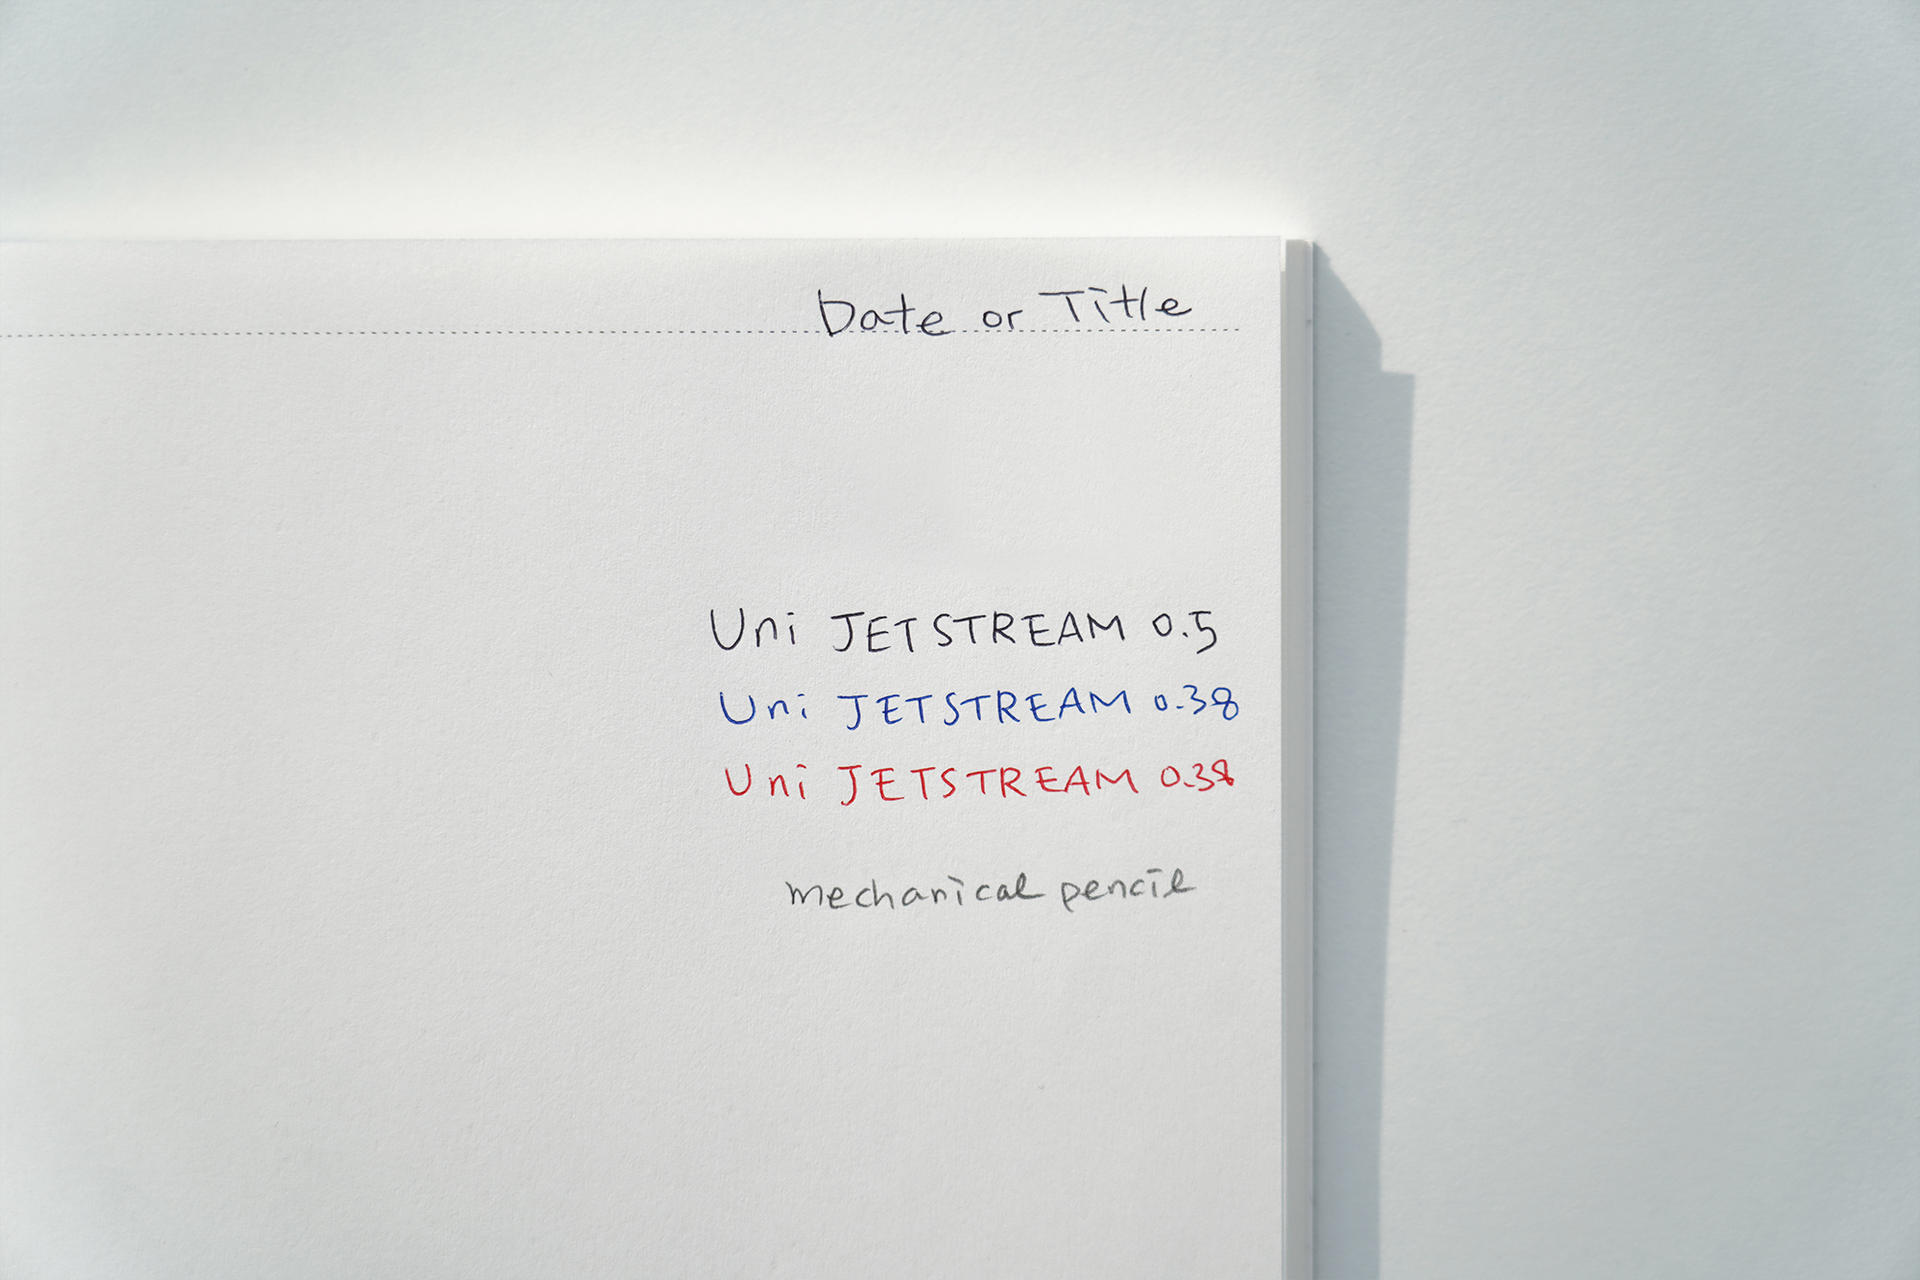 Date or Title
Uni JETSTREAM 0.5
Uni JETSTREAM 0.38
Uni JETSTREAM 0.38
mechanical pencil